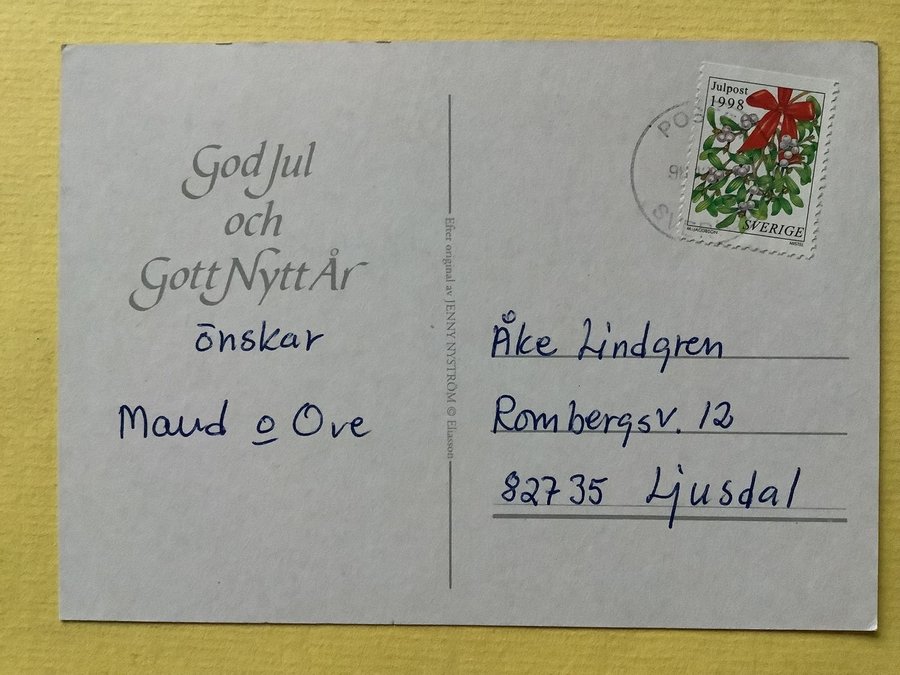 God Jul
och
Gott Nytt År
önskar
Maud o Ove
Efter original av JENNY NYSTRÖM © Eliasson
Julpost
1998
SVERIGE
Åke Lindgren
Rombergsv. 12
82735 Ljusdal